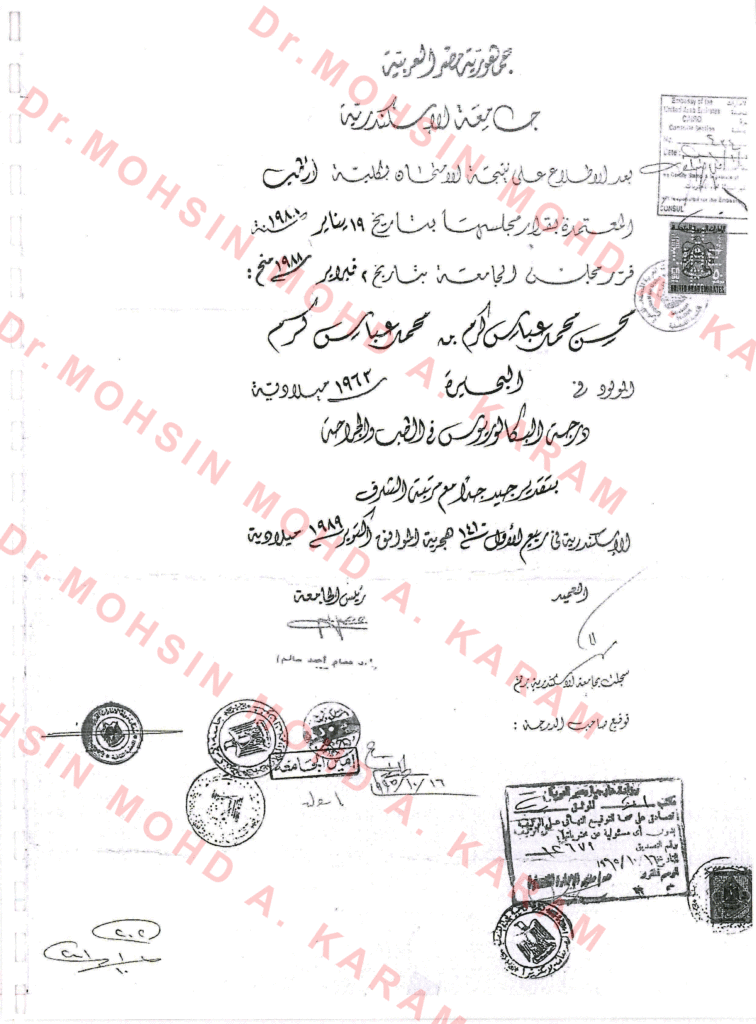 جمهورية مصر العربية
جامعة الإسكندرية
بعد الاطلاع على نتيجة الامتحان فى كلية الطب
المعتمدة بقرار مجلسها بتاريخ ١٩ يناير سنة ١٩٨٨
قرر مجلس الجامعة بتاريخ ٢ فبراير ١٩٨٨ منح :
محسن محمد عباس كرم بن محمد عباس كرم
المولود فى البحيرة ١٩٦٣ ميلادية
درجة البكالوريوس فى الطب والجراحة
بتقدير جيد جدا مع مرتبة الشرف
الإسكندرية فى ربيع الأول ١٤١٠ هجرية الموافق أكتوبر ١٩٨٩ ميلادية
العميد
رئيس الجامعة
سجلت بجامعة الإسكندرية برقم
توقيع صاحب الدرجة :
Embassy of the
United Arab Emirates
CAIRO
Consular Section
No.
Date
CONSUL
UNITED ARAB EMIRATES
أمين الجامعة
١٩٩٥/١٠/١٦
Dr.MOHSIN MOHD A. KARAM
Dr.MOHSIN MOHD A. KARAM
Dr.MOHSIN MOHD A. KARAM
Dr.MOHSIN MOHD A. KARAM